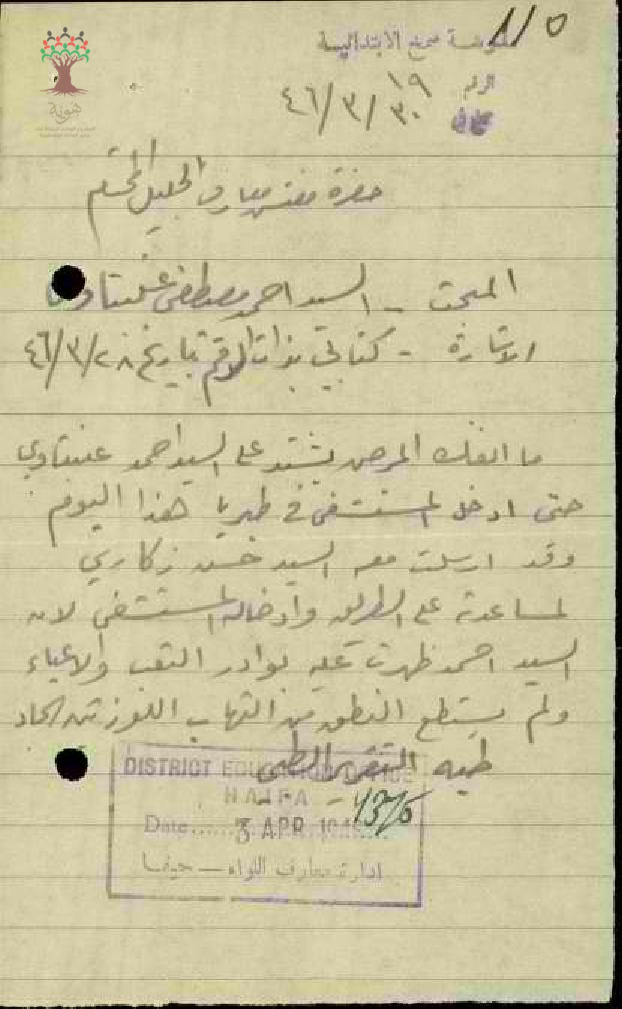 ١١٥
مدرسة سمخ الابتدائية
الرقم ١٩
٤٦/٣/٣٠
هوية
حضرة مفتش معارف الجليل المحترم
المبحث - السيد احمد مصطفى عنبتاوي
الاشارة - كتابي بذات الرقم تاريخ ٤٦/٣/٢٨
ما انفك المرض يشتد على السيد احمد عنبتاوي
حتى ادخل المستشفى في طبريا هذا اليوم
وقد ارسلت معه السيد حسن زكاري
لمساعدته على الطريق وادخاله المستشفى لان
السيد احمد ظهرت عليه بوادر التعب والاعياء
ولم يستطع النطق من التهاب اللوزتين الحاد
طيه التقرير الطبي
DISTRICT EDUCATION OFFICE
HAIFA
Date 3 APR 1946
ادارة معارف اللواء — حيفا